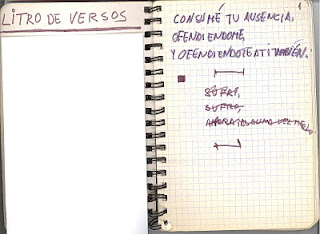 LITRO DE VERSOS
1
CONSUMÉ TU AUSENCIA,
OFENDIENDOME,
Y OFENDIENDOTE A TI TAMBIÉN.
SUFRI,
SUFRO,